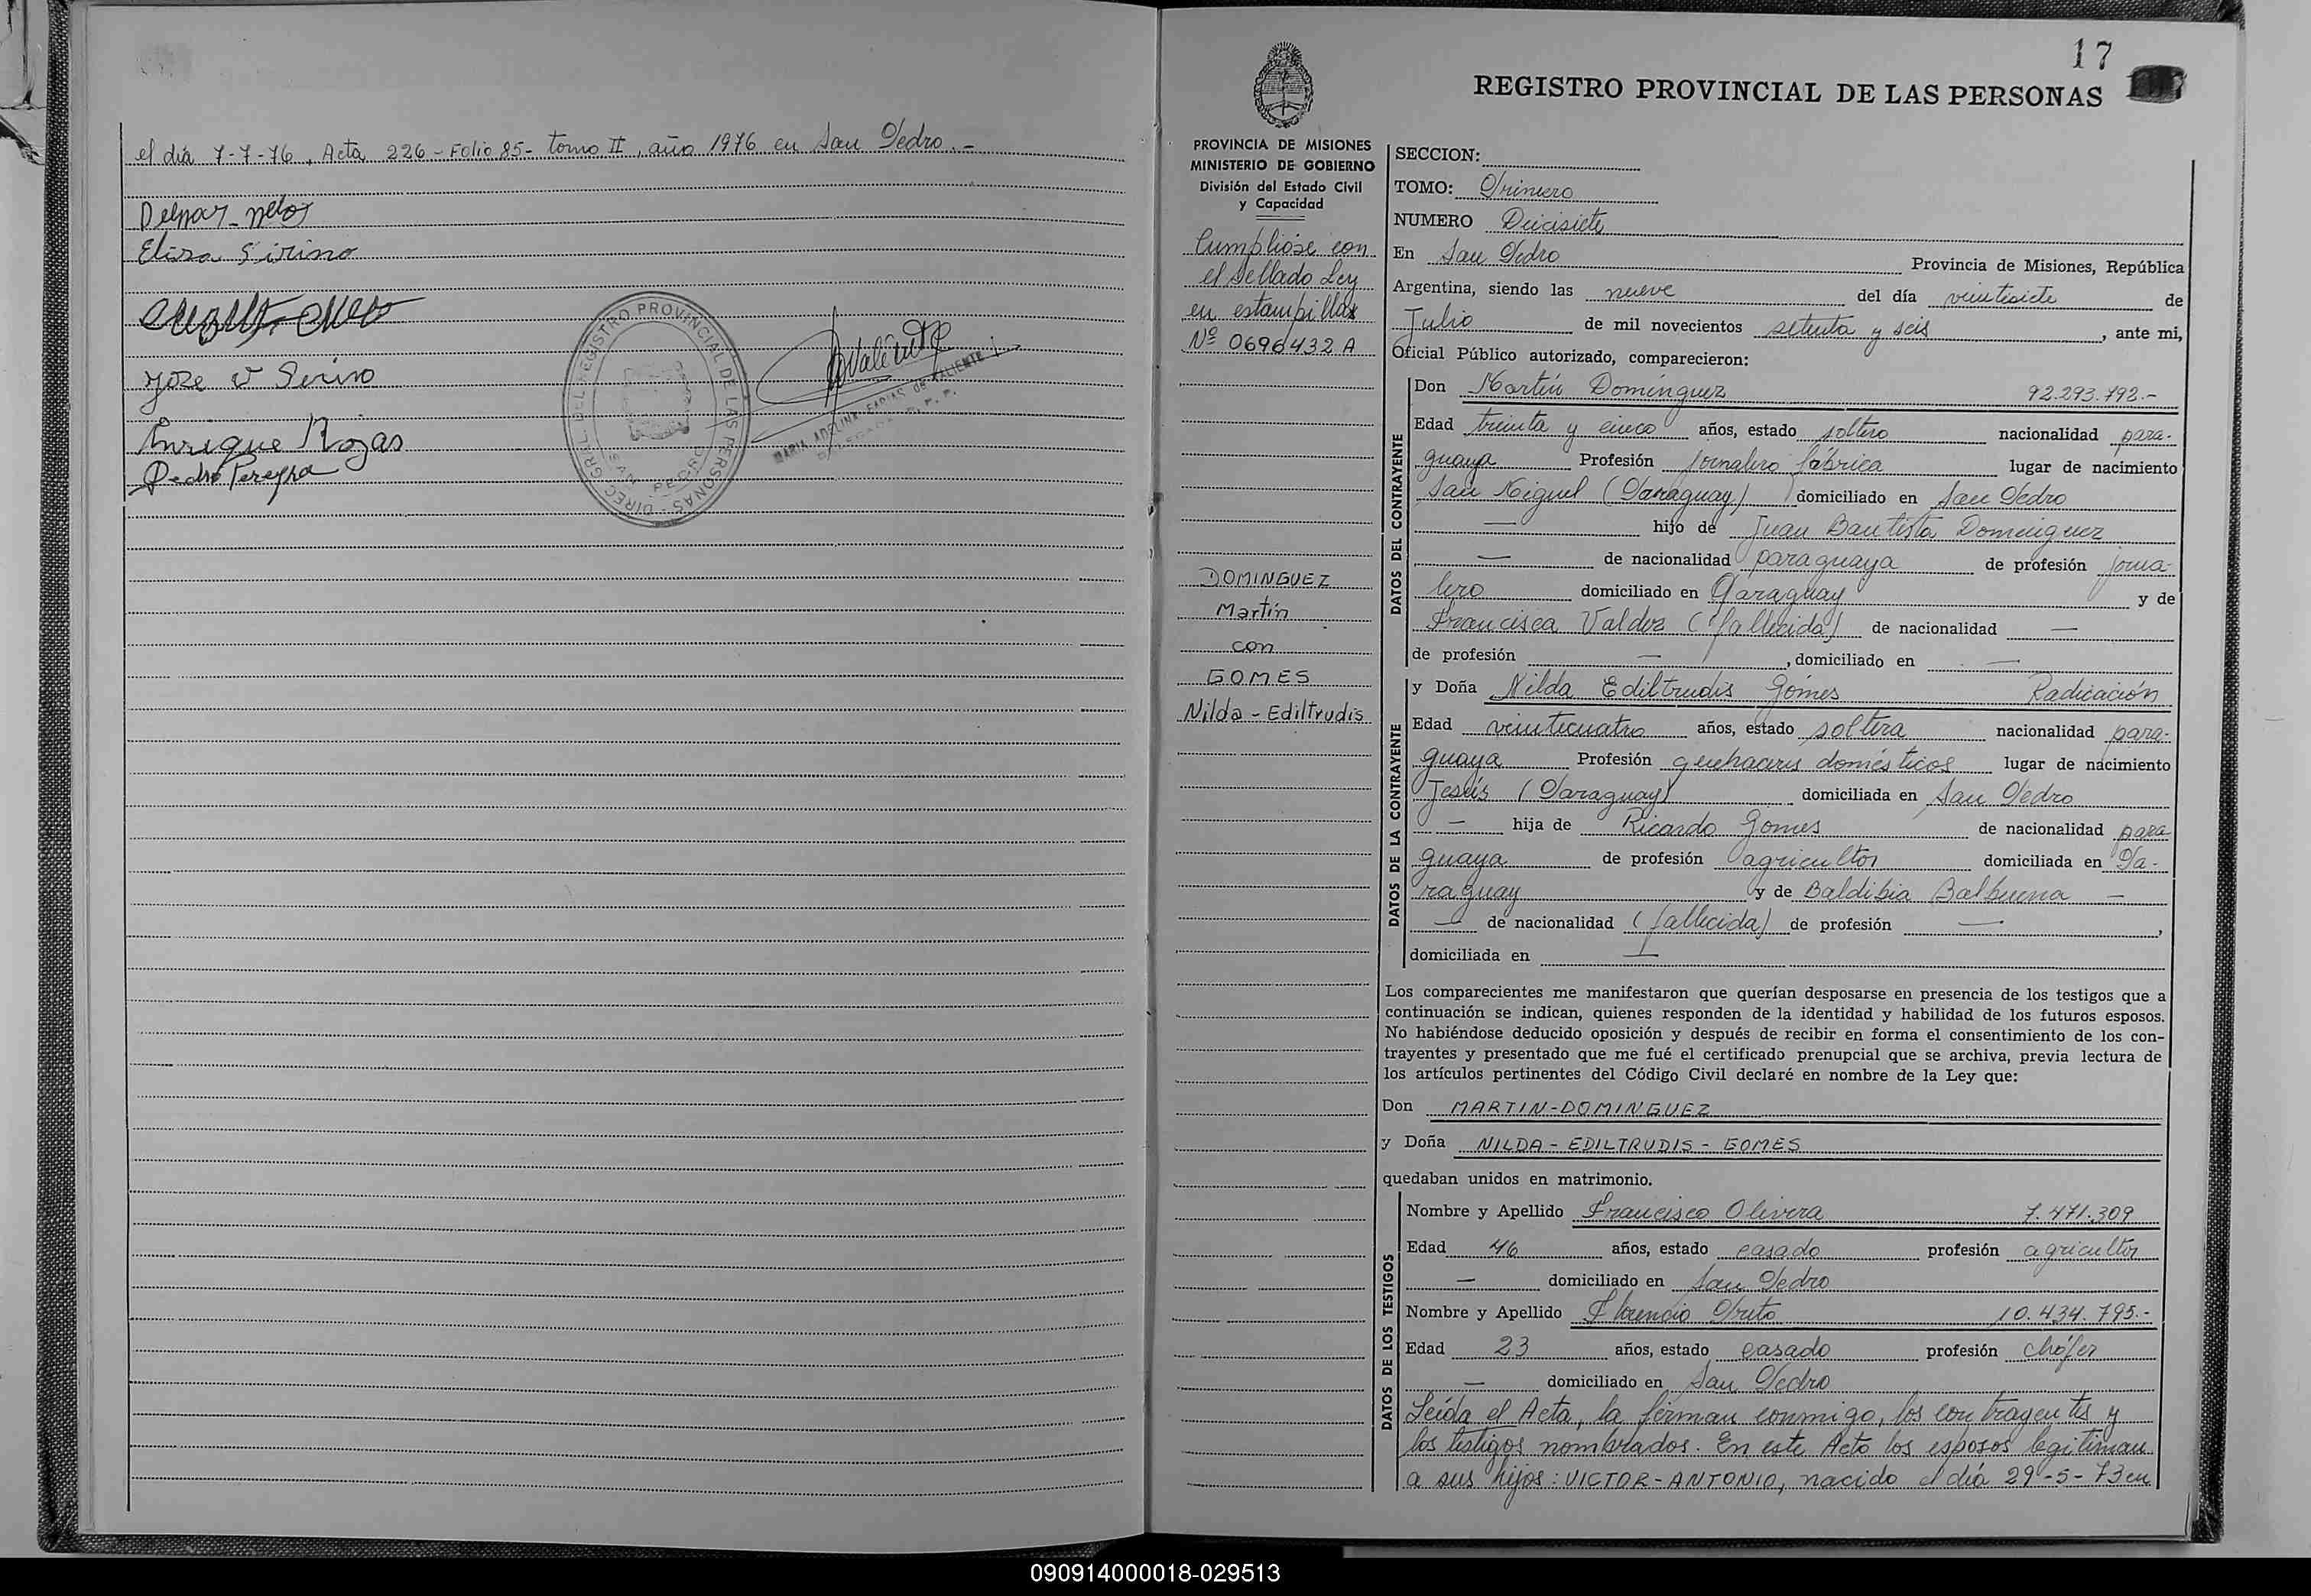 el día 7-7-76, Acta 226 - Folio 85 - tomo II, año 1976 en San Pedro. -
Elisa Sirino
Enrique Rojas
Pedro Pereyra
DIREC. GRAL. DEL REGISTRO PROVINCIAL DE LAS PERSONAS -
SAN PEDRO
17
REGISTRO PROVINCIAL DE LAS PERSONAS
PROVINCIA DE MISIONES
MINISTERIO DE GOBIERNO
División del Estado Civil
y Capacidad
Cumplióse con
el Sellado Ley
en estampillas
Nº 0696432 A
DOMINGUEZ
Martín
con
GOMES
Nilda - Ediltrudis
SECCION:
TOMO: Primero
NUMERO Diecisiete
En San Pedro Provincia de Misiones, República
Argentina, siendo las nueve del día veintisiete de
Julio de mil novecientos setenta y seis, ante mi,
Oficial Público autorizado, comparecieron:
DATOS DEL CONTRAYENTE
Don Martín Domínguez 92.293.792.-
Edad treinta y cinco años, estado soltero nacionalidad para-
guaya Profesión jornalero fábrica lugar de nacimiento
San Miguel (Paraguay) domiciliado en San Pedro
— hijo de Juan Bautista Domínguez
— de nacionalidad paraguaya de profesión jorna-
lero domiciliado en Paraguay y de
Francisca Valdez (fallecida) de nacionalidad —
de profesión —, domiciliado en —
DATOS DE LA CONTRAYENTE
y Doña Nilda Ediltrudis Gomes Radicación
Edad veinticuatro años, estado soltera nacionalidad para-
guaya Profesión quehaceres domésticos lugar de nacimiento
Jesús (Paraguay) domiciliada en San Pedro
— hija de Ricardo Gomes de nacionalidad para
guaya de profesión agricultor domiciliada en Pa-
raguay y de Baldibia Balbuena —
— de nacionalidad (fallecida) de profesión —,
domiciliada en —
Los comparecientes me manifestaron que querían desposarse en presencia de los testigos que a
continuación se indican, quienes responden de la identidad y habilidad de los futuros esposos.
No habiéndose deducido oposición y después de recibir en forma el consentimiento de los con-
trayentes y presentado que me fué el certificado prenupcial que se archiva, previa lectura de
los artículos pertinentes del Código Civil declaré en nombre de la Ley que:
Don MARTIN-DOMINGUEZ
y Doña NILDA - EDILTRUDIS - GOMES
quedaban unidos en matrimonio.
DATOS DE LOS TESTIGOS
Nombre y Apellido Francisco Olivera 7.471.309
Edad 46 años, estado casado profesión agricultor
— domiciliado en San Pedro
Nombre y Apellido Florencio Prieto 10.434.795.-
Edad 23 años, estado casado profesión chófer
— domiciliado en San Pedro
Leída el Acta, la firman conmigo, los contrayentes y
los testigos nombrados. En este Acto los esposos legitiman
a sus hijos: VICTOR-ANTONIO, nacido el día 29-5-73 en
090914000018-029513